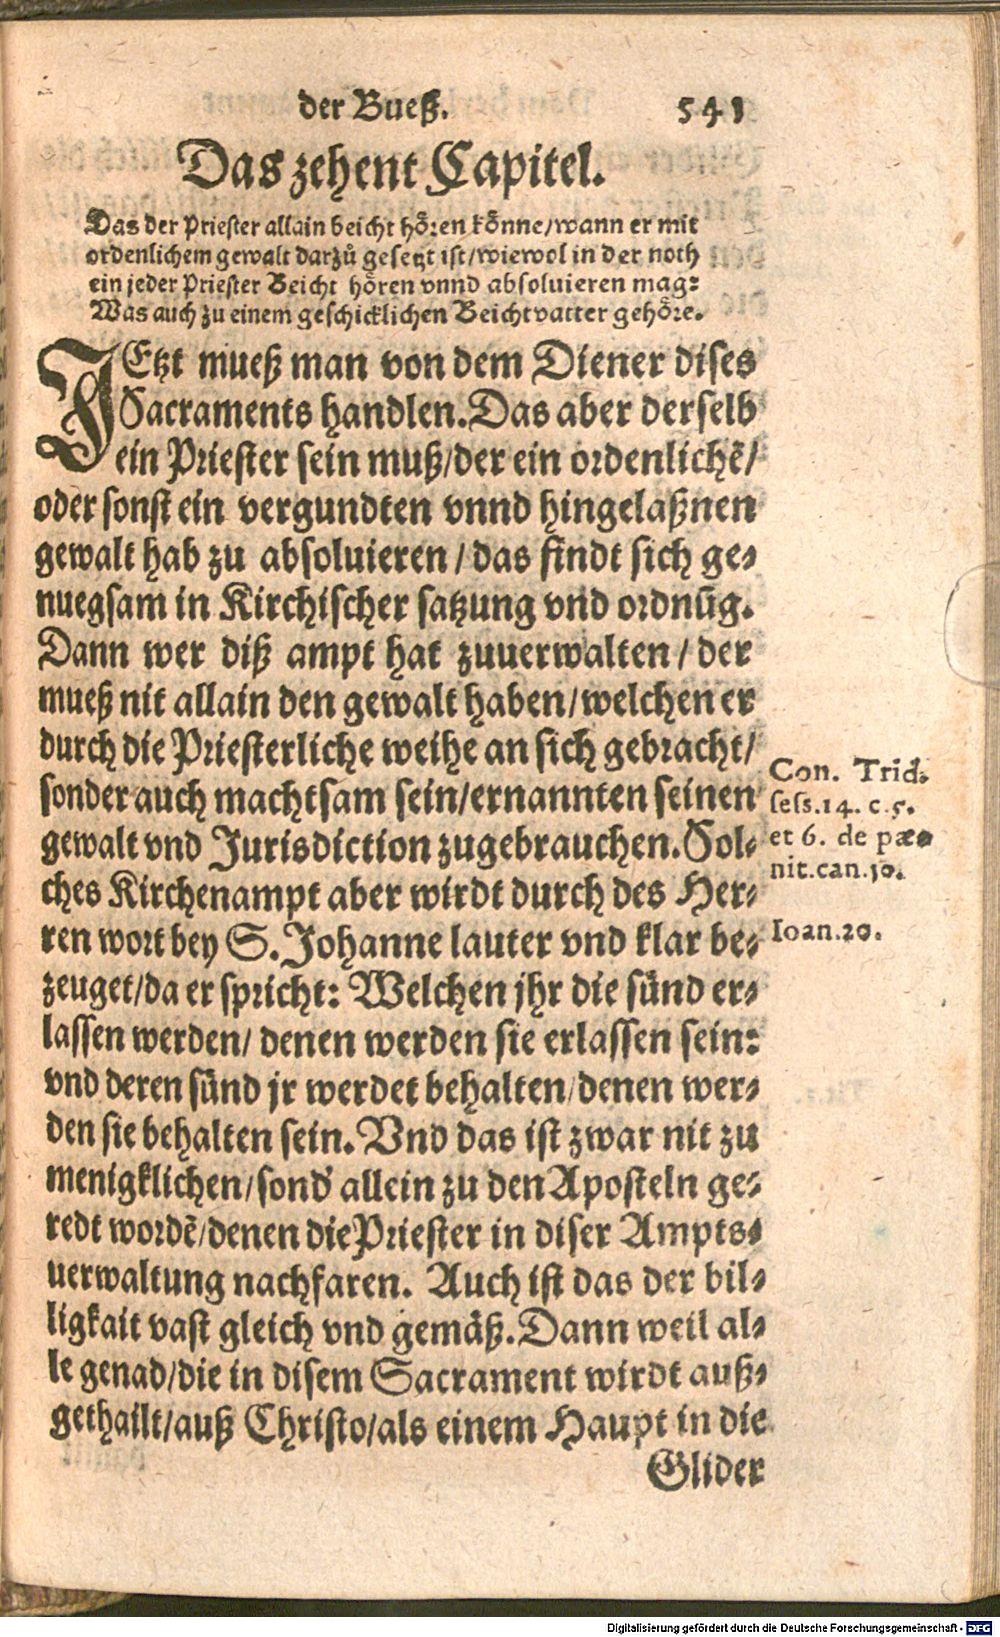 der Bueß. 541
Das zehent Capitel.
Das der Priester allain beicht hören könne/wann er mit
ordenlichem gewalt darzů gesetzt ist/wiewol in der noth
ein jeder Priester Beicht hören vnnd absoluieren mag:
Was auch zu einem geschicklichen Beichtvatter gehöre.
JEtzt mueß man von dem Diener dises
Sacraments handlen. Das aber derselb
ein Priester sein muß/der ein ordenlichē/
oder sonst ein vergundten vnnd hingelaßnen
gewalt hab zu absoluieren/das findt sich ge-
nuegsam in Kirchischer satzung vnd ordnūg.
Dann wer diß ampt hat zuuerwalten/der
mueß nit allain den gewalt haben/welchen er
durch die Priesterliche weihe an sich gebracht/
sonder auch machtsam sein/ernannten seinen
gewalt vnd Jurisdiction zugebrauchen. Sol-
ches Kirchenampt aber wirdt durch des Her-
ren wort bey S. Johanne lauter vnd klar be-
zeuget/da er spricht: Welchen jhr die sünd er-
lassen werden/denen werden sie erlassen sein:
vnd deren sünd jr werdet behalten/denen wer-
den sie behalten sein. Vnd das ist zwar nit zu
menigklichen/sond' allein zu den Aposteln ge-
redt wordē/denen die Priester in diser Ampts-
uerwaltung nachfaren. Auch ist das der bil-
ligkait vast gleich vnd gemäß. Dann weil al-
le genad/die in disem Sacrament wirdt auß-
gethailt/auß Christo/als einem Haupt in die
Glider
Con. Trid.
sess.14. c.5.
et 6. de pæ-
nit.can.10.
Ioan.20.
Digitalisierung gefördert durch die Deutsche Forschungsgemeinschaft - DFG